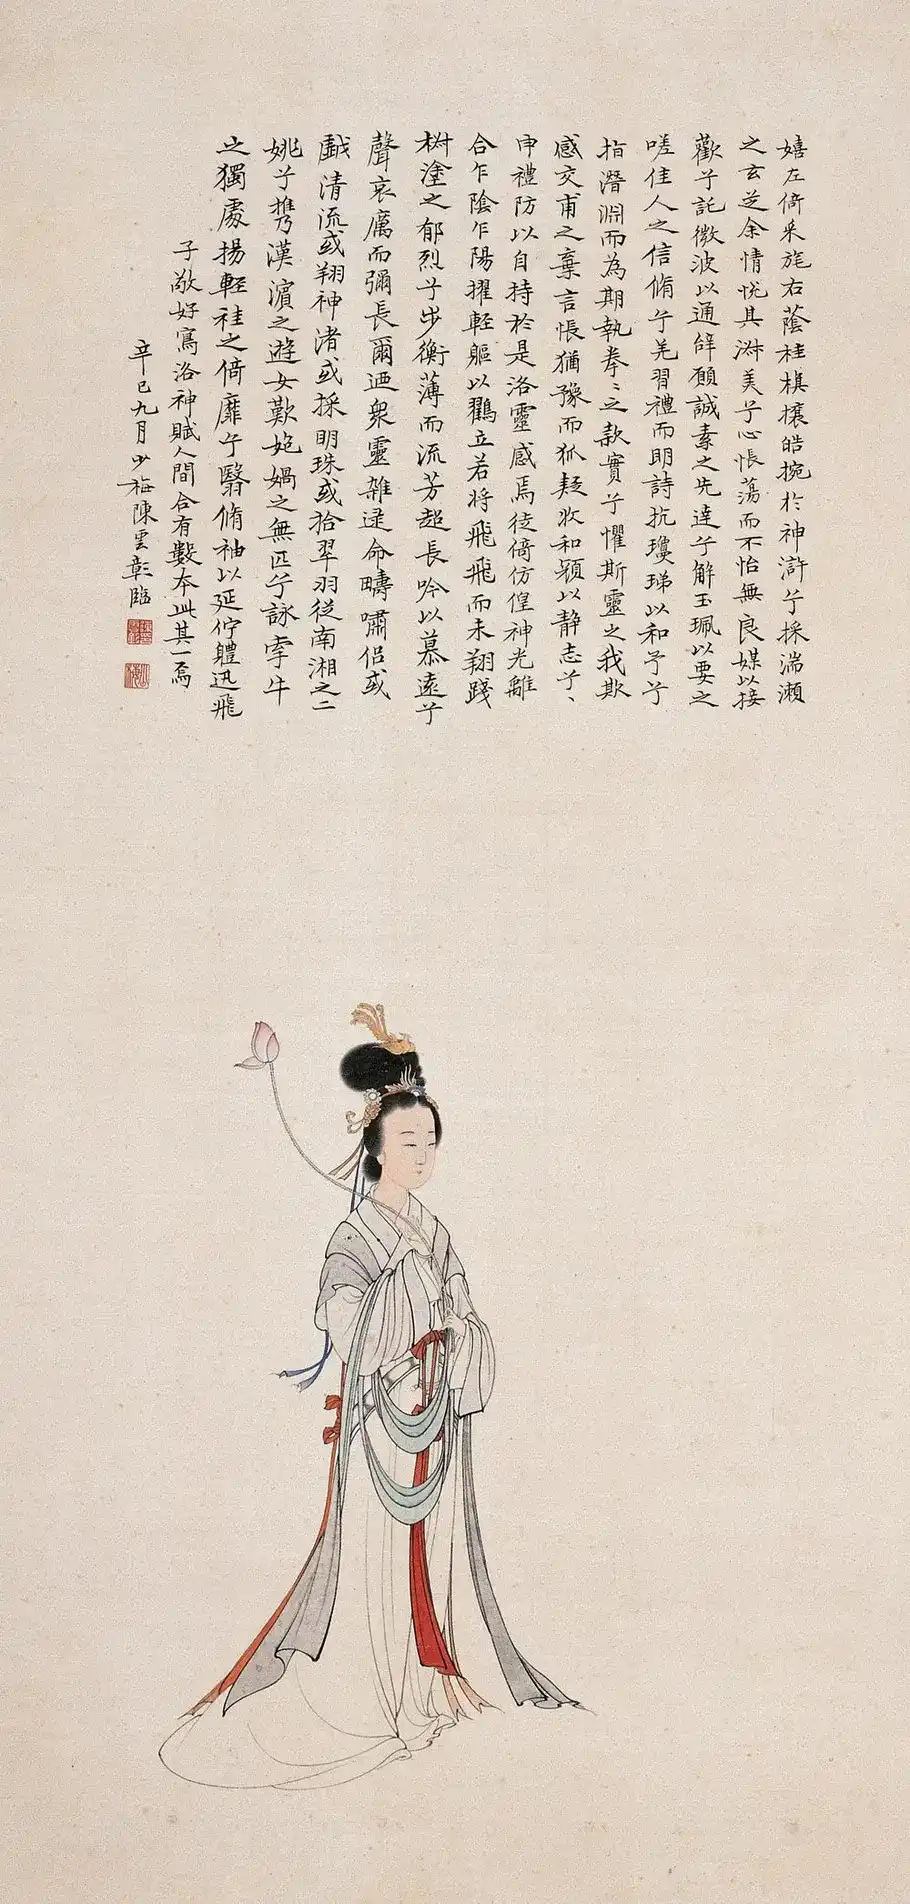 嬉左倚采旄右蔭桂旗攘皓捥於神滸兮採湍瀨
之玄芝余情悅其淋美兮心悵蕩而不怡無良媒以接
歡兮託微波以通辝願誠素之先達兮解玉珮以要之
嗟佳人之信脩兮羌習禮而明詩抗瓊珶以和予兮
指潛淵而為期執拳〻之款實兮懼斯靈之我欺
感交甫之棄言悵猶豫而狐疑收和顏以静志兮、
申禮防以自持於是洛靈感焉徙倚仿偟神光離
合乍陰乍陽擢輕軀以鶴立若將飛飛而未翔踐
椒塗之郁烈兮步衡薄而流芳超長吟以慕遠兮
聲哀厲而彌長爾迺衆靈雜遝命疇嘯侶或
戲清流或翔神渚或採明珠或拾翠羽從南湘之二
姚兮攜漢濱之遊女歎媧之無匹兮詠牽牛
之獨處揚輕袿之倚靡兮翳脩袖以延佇體迅飛
子敬好寫洛神賦人間合有數本此其一焉
辛巳九月少梅陳雲彰臨